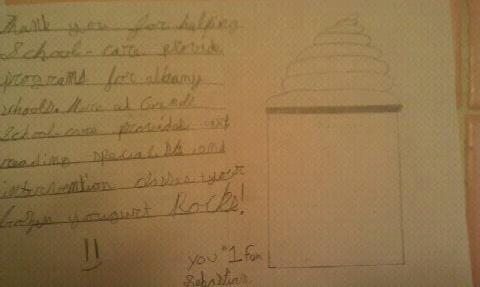 Thank you for helping
School-care provide
programs for albany
schools. Here at
School-care provides art
reading specialists and
intervention classes your
yougurt Rocks!
you #1 fan
Sebastian